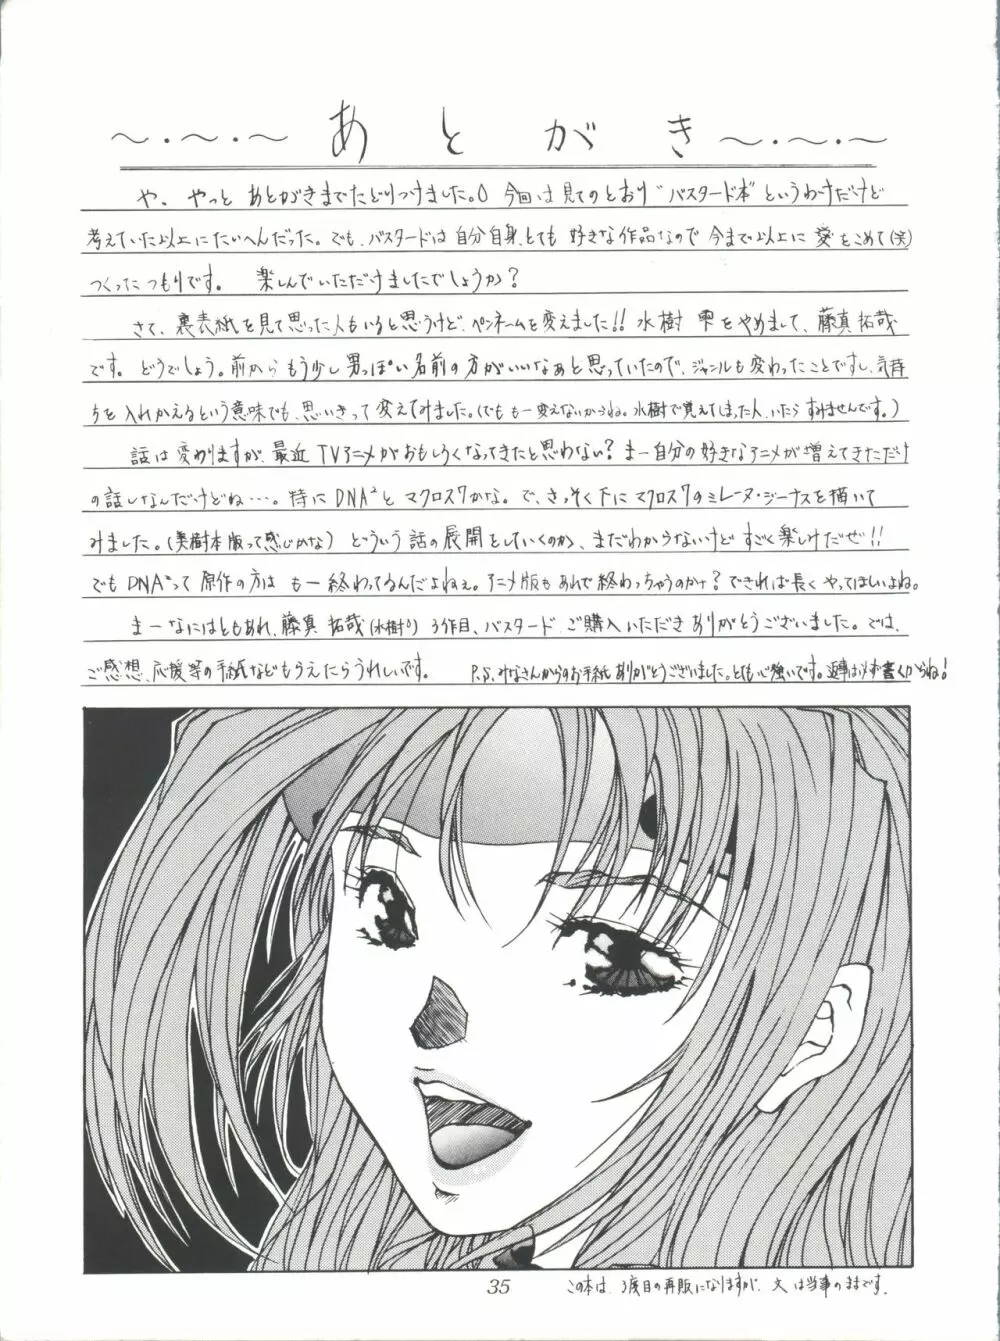 ～・～・～ あとがき ～・～・～
や、やっと あとがきまでたどりつけました。 今回は見てのとおり "バスタード本" というわけだけど
考えていた以上にたいへんだった。でも、バスタードは自分自身、とても 好きな作品なので 今まで以上に 愛をこめて(笑)
つくったつもりです。 楽しんでいただけましたでしょうか?
さて、裏表紙を見て思った人もいると思うけど、ペンネームを変えました!! 水樹 雫をやめまして、藤真拓哉
です。どうでしょう。前から もう少し男っぽい名前の方がいいなあと思っていたので、ジャンルも変わったことですし、気持
ちを入れかえるという意味でも、思いきって変えてみました。(でも もー変えないからね。水樹で覚えてしまった人、いたら すみませんです。)
話は変わりますが、最近 TVアニメがおもしろくなってきたと思わない? まー自分の好きなアニメが増えてきただけ
の話しなんだけどね…。特に DNA²と マクロス7かな。で、さっそく下に マクロス7のミレーヌ・ジーナスを描いて
みました。(美樹本版って感じかな) どういう話の展開をしていくのか、まだわからないけど すごく楽しみだぜ!!
でもDNA²って 原作の方は もー終わってるんだよねぇ。アニメ版もあれで終わっちゃうのか? できれば長く やってほしいよね。
まーなにはともあれ、藤真 拓哉(水樹) 3作目、バスタード ご購入いただき ありがとうございました。では、
ご感想、応援等の手紙などもらえたらうれしいです。 P.S.みなさんからのお手紙 ありがとうございました。とても心強いです。返事は必ず書くからね!
35
この本は、3度目の再販になりますが、文は当事のままです。